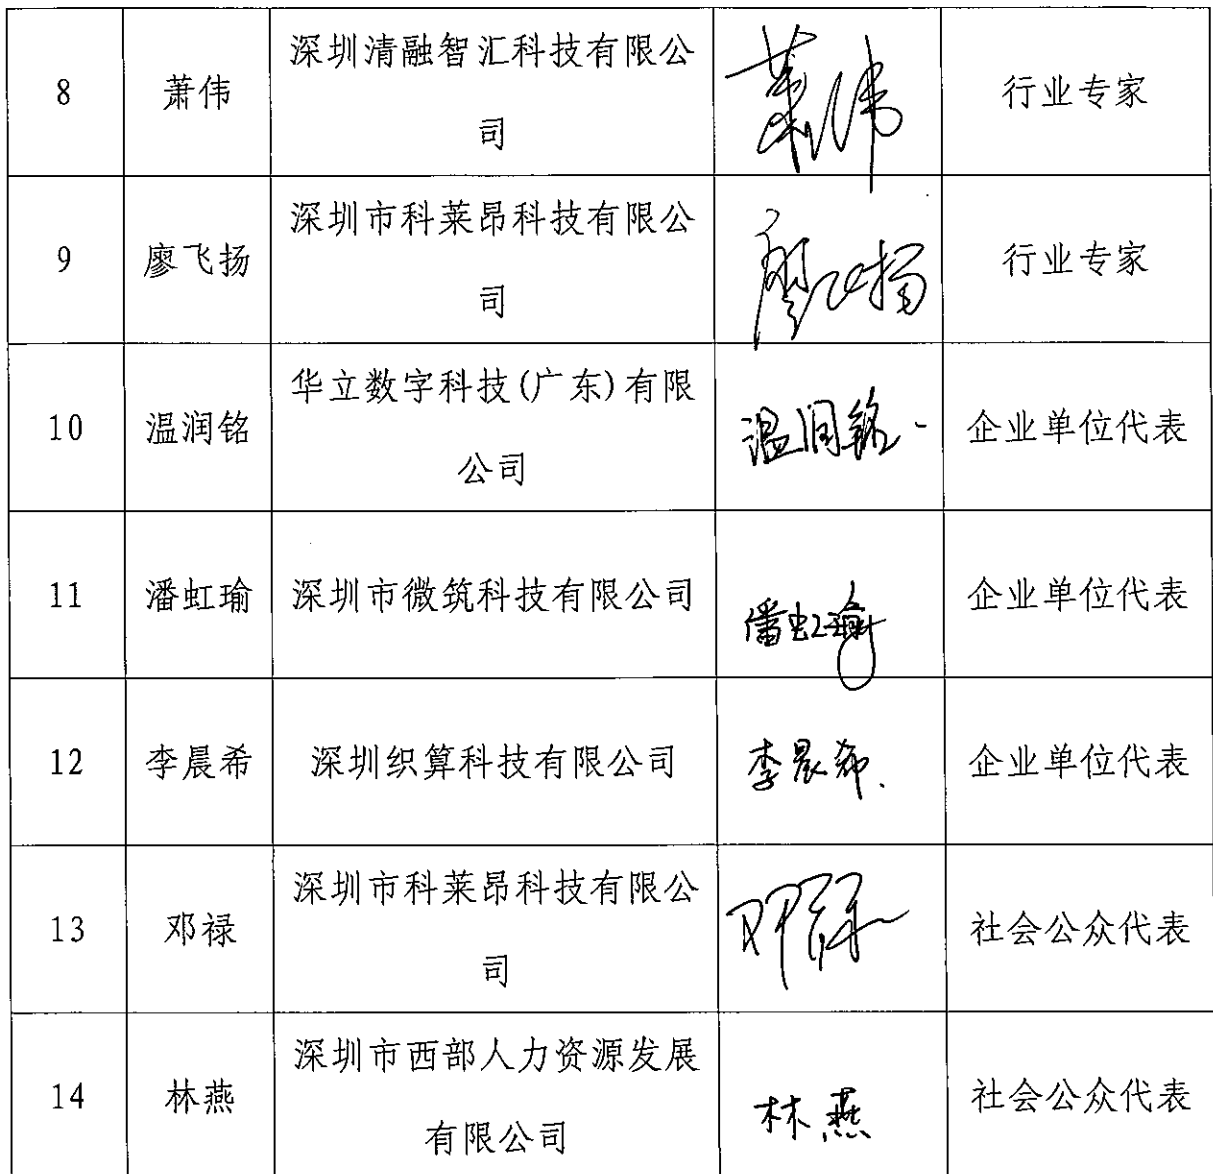 8 萧伟 深圳清融智汇科技有限公 萧伟 行业专家
司
9 廖飞扬 深圳市科莱昂科技有限公 廖飞扬 行业专家
司
10 温润铭 华立数字科技(广东)有限 温润铭 企业单位代表
公司
11 潘虹瑜 深圳市微筑科技有限公司 潘虹瑜 企业单位代表
12 李晨希 深圳织算科技有限公司 李晨希 企业单位代表
13 邓禄 深圳市科莱昂科技有限公 邓禄 社会公众代表
司
14 林燕 深圳市西部人力资源发展 林燕 社会公众代表
有限公司